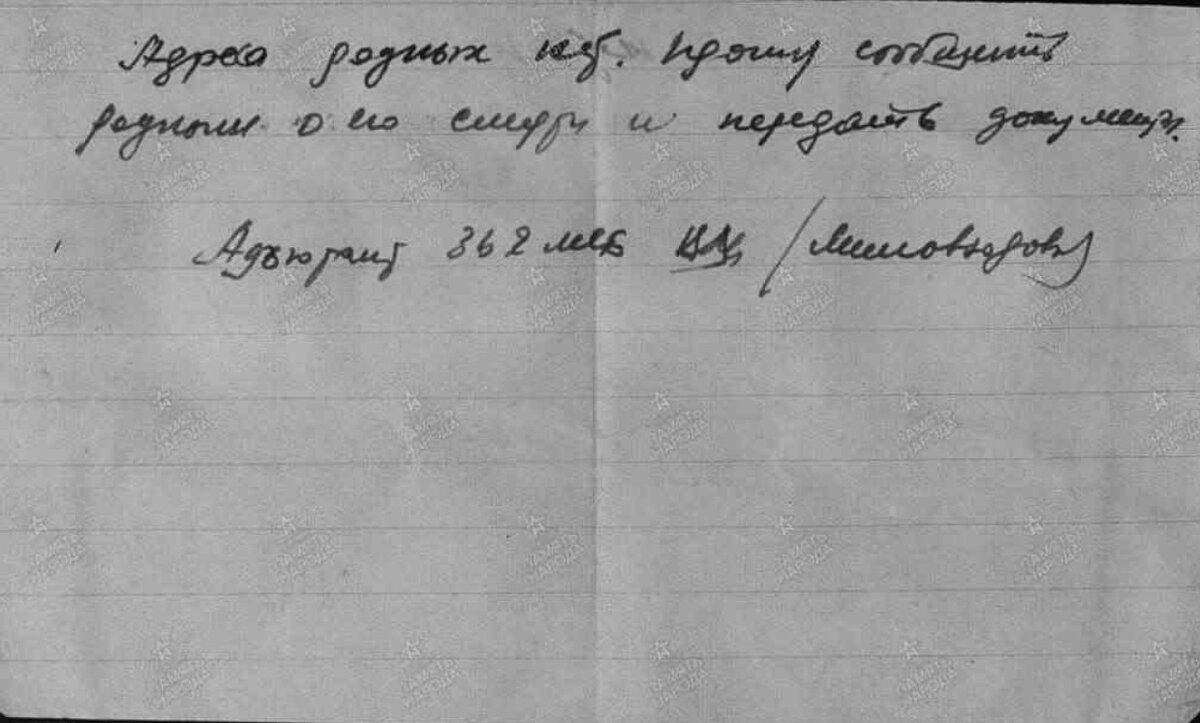 Адреса родных нет. Прошу сообщить
родным о его смерти и передать документы.
Адъютант 362 мсб /Миловзоров/
ПАМЯТЬ НАРОДА